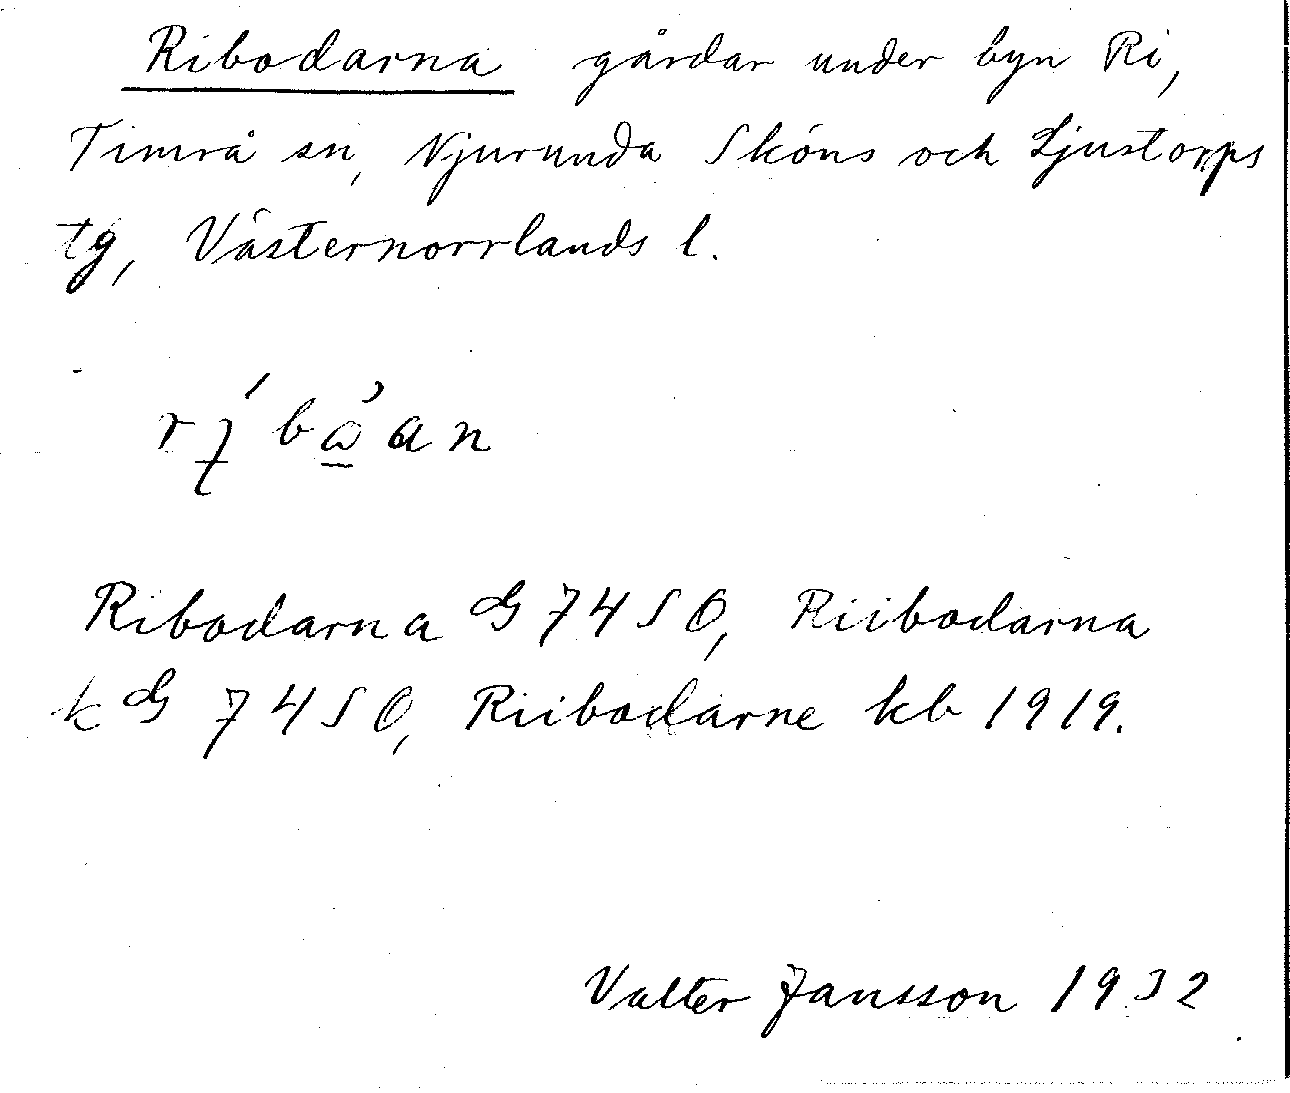 Ribodarna gårdar under byn Ri,
Timrå sn, Njurunda Sköns och Ljustorps
tg, Västernorrlands l.
Ribodarna G 74 S O, Riibodarna
k G 74 S O, Riibodarne kb 1919.
Valter Jansson 1932